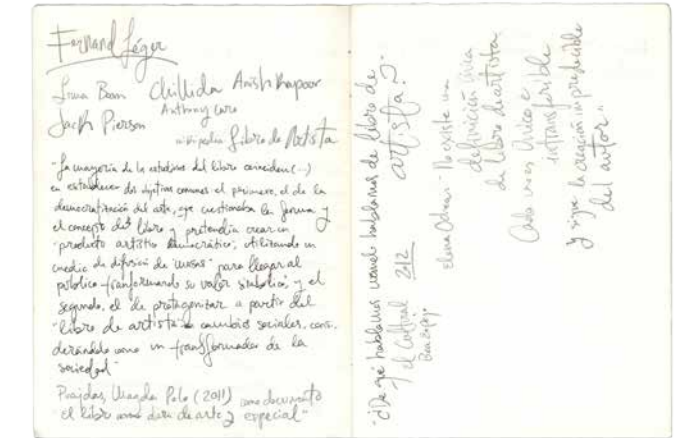 Fernand Léger
Irma Boom Chillida Anish Kapoor
Anthony Caro
Jack Pierson
wikipedia Libro de Artista
"La mayoría de los estudiosos del libro coinciden (...)
en establecer dos objetivos comunes el primero, el de la
democratización del arte, que cuestionaba la forma y
el concepto del libro y pretendía crear un
"producto artístico democrático", utilizando un
medio de difusión de "masas" para llegar al
público transformando su valor simbólico; y el
segundo, el de protagonizar a partir del
"libro de artista" cambios sociales, consi-
derándolo como un transformador de la
sociedad"
Magda Polo (2011) como documento
el libro como de arte y especial"
"¿De qué hablamos cuando hablamos de libro de
artista?"
El Cultural 2/2
Elena No existe una
definición única
de libro de artista
Cada voz es única e
intransferible
y sigue la creación impredecible
del autor"